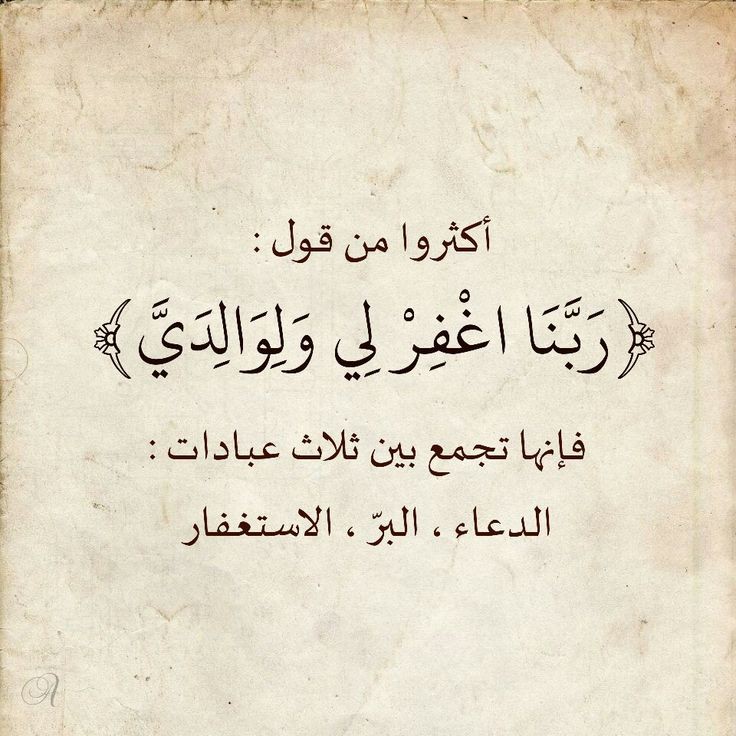 أكثروا من قول :
﴿ رَبَّنَا اغْفِرْ لِي وَلِوَالِدَيَّ ﴾
فإنها تجمع بين ثلاث عبادات :
الدعاء ، البرّ ، الاستغفار
A